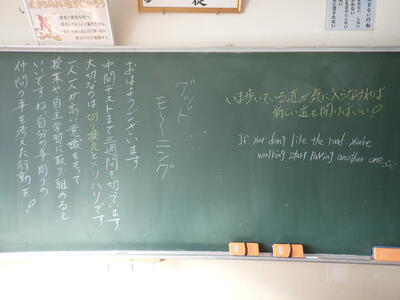 グット・・・
モ〜ニング
おはようございます
中間テストまで三週間を切っています。
大切なのは切り換えとメリハリです
一人一人が高い意識をもって
授業や自主学習に取り組めると
いいですね自分の事周りの
仲間の事を考えた行動を!
いま歩いている道が気に入らなければ
新しい道を開けばいい!
If you don't like the road you're
walking, start paving another one